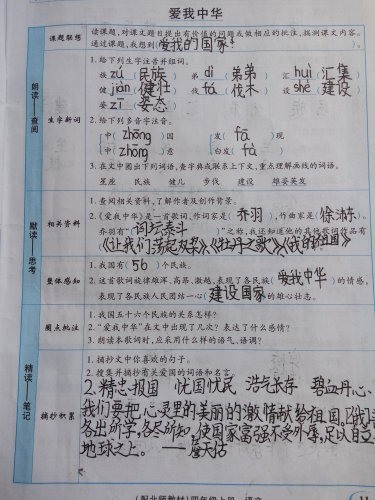 爱我中华
课题联想
读课题,对课文题目提出有价值的问题或做相应的批注,猜测课文内容。
通过课题,我想到(爱我的国家!)。
朗读——查阅
生字新词
1. 给下列生字注音并组词。
族 zú (民族) 弟 dì (弟弟) 汇 huì (汇集)
健 jiàn (健壮) 伐 fá (伐木) 设 shè (建设)
姿 zī (姿态)
2. 给下列多音字注音。
中(zhōng)国 发(fā)现
中(zhōng)意 白发(fà)
3. 在文中圈出下列词语,查字典或联系上下文,重点理解画线的词语。
星座 民族 健儿 步伐 建设 雄姿英发
默读——思考
相关资料
1. 查阅相关资料,了解作者及创作背景。
2. 《爱我中华》是一首歌词,作词家是(乔羽),作曲家是(徐沛东)。
乔羽有“(词坛泰斗)”之称,我还知道他的其他歌词作品有
(《让我们荡起双桨》、《牡丹之歌》、《我的祖国》)
整体感知
1. 我国有(56)个民族。
2. 这首歌词旋律雄浑、高昂、激越,表现了各民族(爱我中华)的情感,
表现了各民族人民团结一心(建设国家)的雄心壮志。
圈点批注
1. 我国五十六个民族的关系怎样?
2. “爱我中华”在文中出现了几次?表达了什么感情?
3. 朗读本歌词时,应采用什么样的语气、语调?
精读——笔记
摘抄积累
1. 摘抄文中你喜欢的句子。
2. 搜集并摘抄有关爱国的词语和名言。
2. 精忠报国 忧国忧民 浩气长存 碧血丹心、
我们要把心灵里的美丽的激情献给祖国。
各出所学,各尽所知,使国家富强不受外辱,足以自立
地球之上。——詹天佑
(配北师教材)四年级上册·语文
11